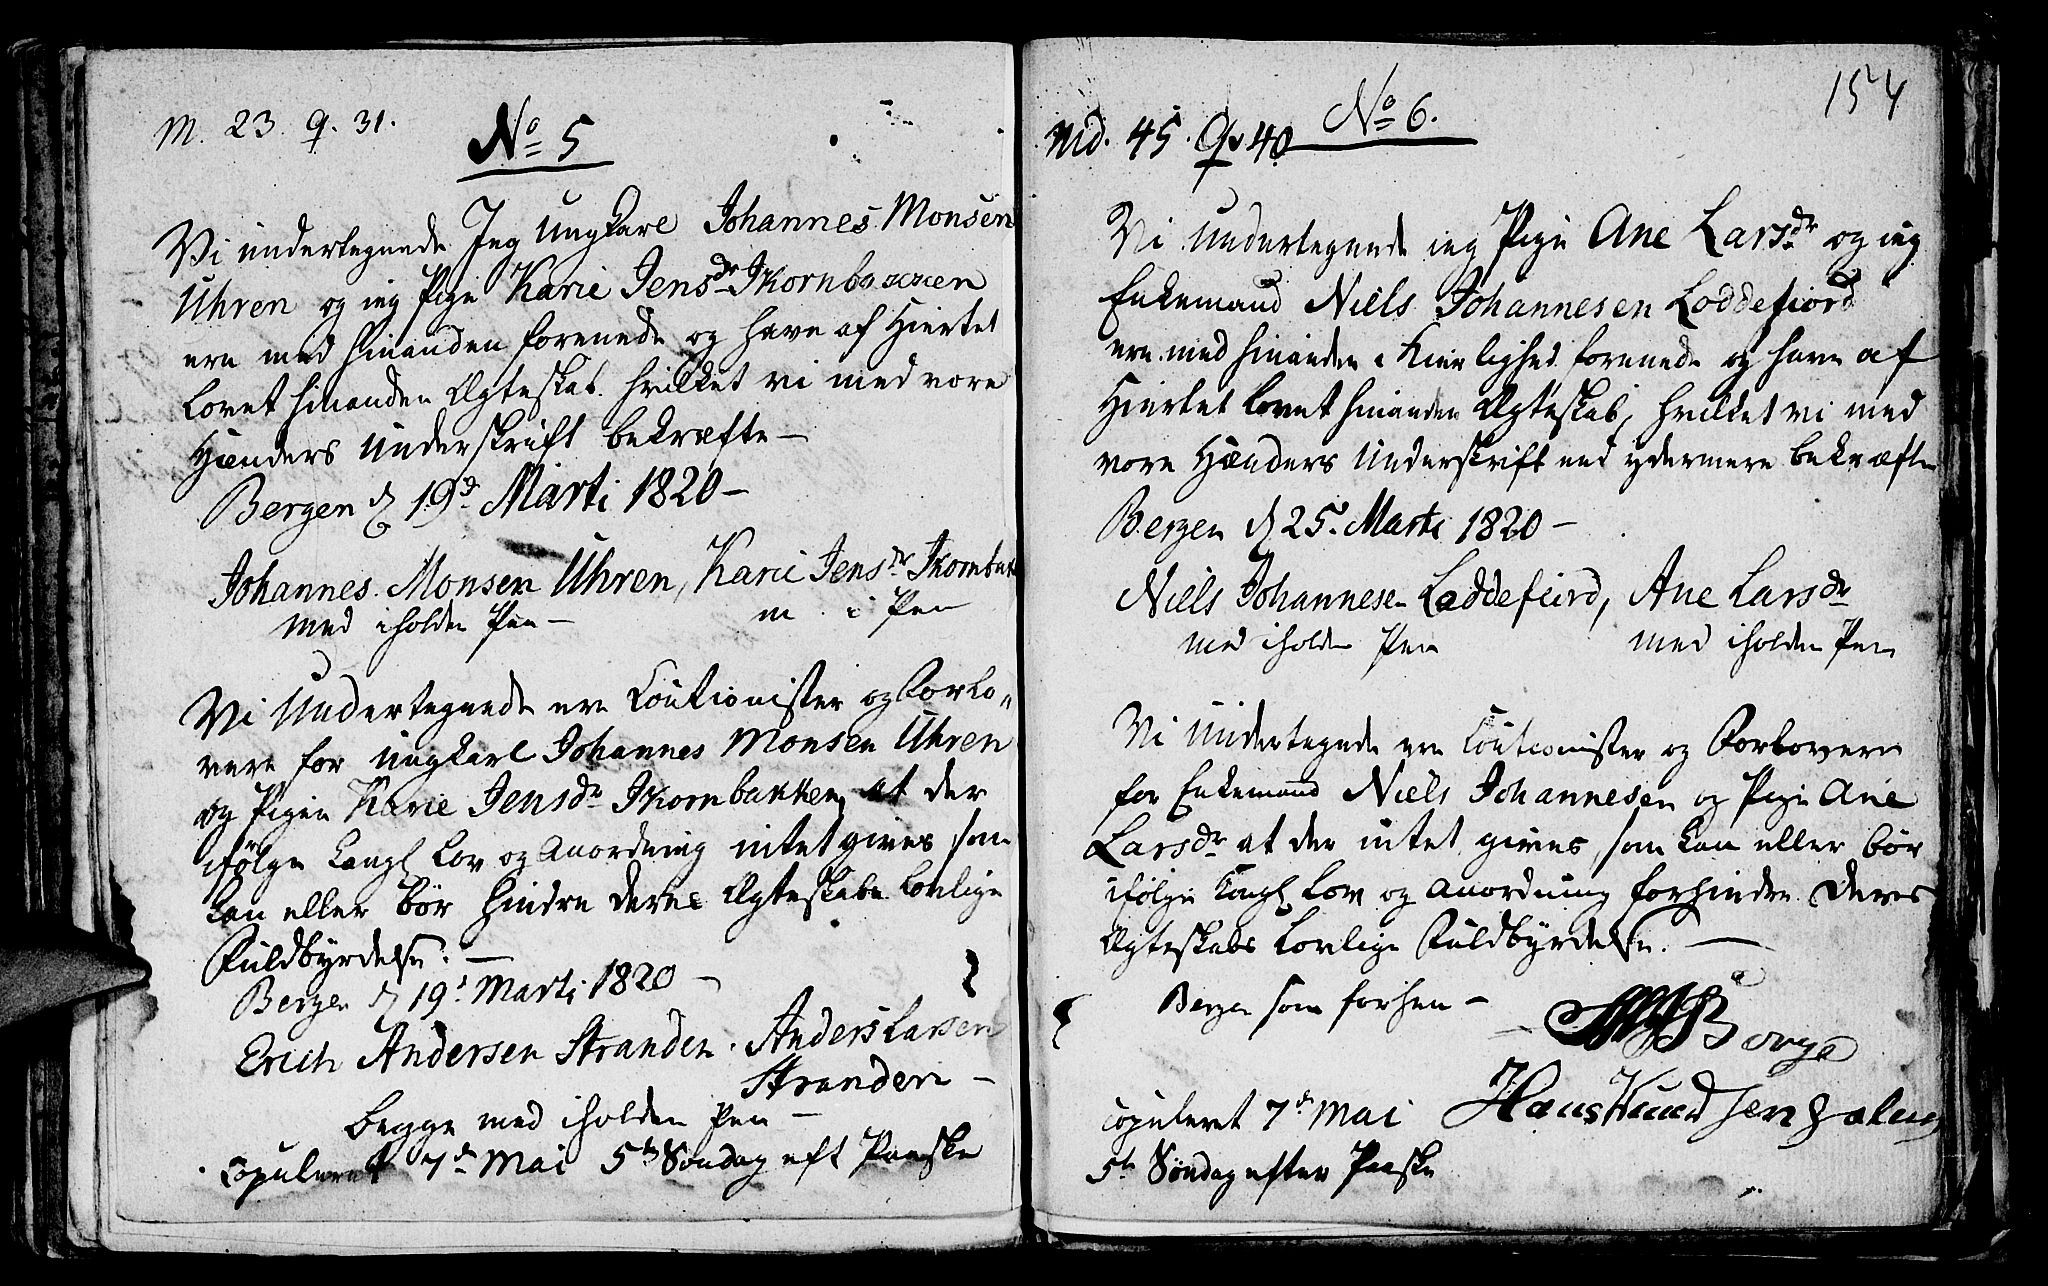 M. 23. Q. 31.
No 5
Vi undertegnede Jeg Ungkarl Johannes Monsen
Uhren og ieg Pige Karie Jensdr Skornbakken
ere med hinanden forenede og have af Hiertet
lovet hinanden Ægteskab hvilket vi med vore
Hænders Underskrift bekræfte —
Bergen d 19d Marti 1820 —
Johannes Monsen Uhren, Karie Jensdr
med iholden Pen — m i Pen
Vi Undertegnede ere Coutionister og Forlo„
vere for Ungkarl Johannes Monsen Uhren
og Pigen Karie Jensdr Skornbakken, at der
ifölge Kongl Lov og Anordning intet gives som
kan eller bör hindre deres Ægteskabs Lovlige
Fuldbyrdelse. —
Bergen d 19d Marti 1820 —
Erich Andersen Stranden. Anders Larsen
Stranden —
begge med iholden Pen —
Copuleret 7de Mai 5te Söndag eft Paaske
154
No 6.
Md. 45. Q. 40
Vi Undertegnede ieg Pige Ane Larsdr og ieg
Enkemand Niels Johannesen Loddefiord
ere med hinanden i Kierlighed forenede og have af
Hiertet lovet hinanden Ægteskab, hvilket vi med
vore Hænders Underskrift end ydermere bekræfte
Bergen d 25. Marti 1820 —
Niels Johannesen Loddefiord, Ane Larsdr
med iholden Pen med iholden Pen
Vi Undertegnede ere Coutionister og Forlovere
for Enkemand Niels Johannesen og Pige Ane
Larsdr at der intet gives, som kan eller bör
ifölge Kongl Lov og Anordning forhindre Deres
Ægteskabs Lovlige Fuldbyrdelse. —
Bergen som forhen —
Copuleret 7de Mai Hans Knudsen
5te Söndag efter Paaske